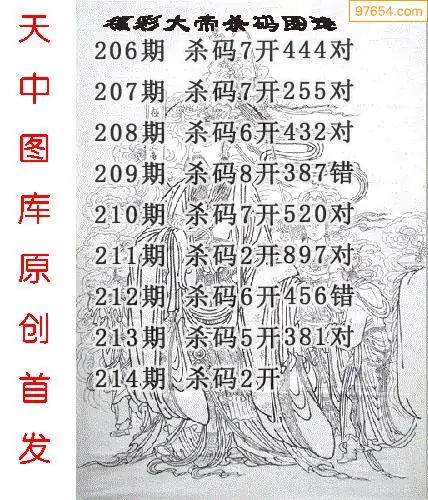 97654.com
福彩大帝杀码图迷
206期 杀码7开444对
207期 杀码7开255对
208期 杀码6开432对
209期 杀码8开387错
210期 杀码7开520对
211期 杀码2开897对
212期 杀码6开456错
213期 杀码5开381对
214期 杀码2开
天中图库原创首发